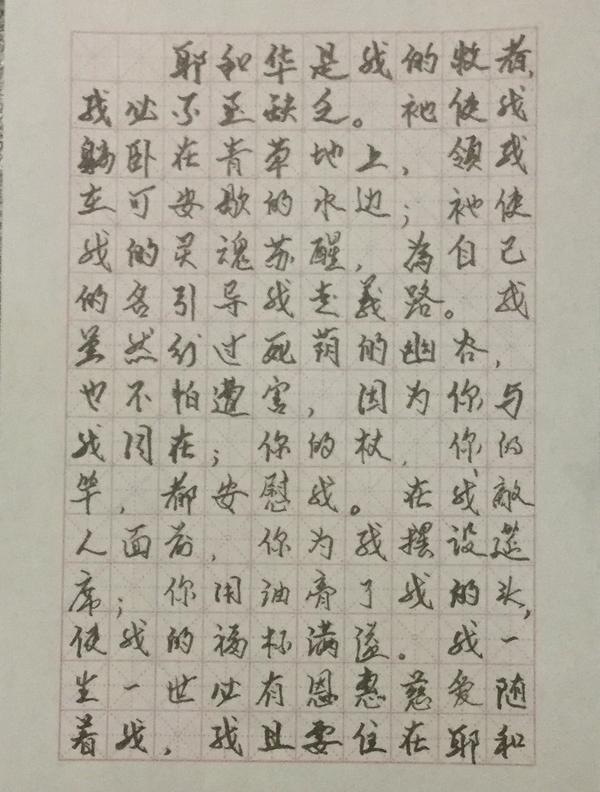 耶和华是我的牧者,
我必不至缺乏。祂使我
躺卧在青草地上,领我
在可安歇的水边;祂使
我的灵魂苏醒,為自己
的名引导我走义路。我
虽然行过死荫的幽谷,
也不怕遭害,因为你与
我同在;你的杖,你的
竿,都安慰我。在我敵
人面前,你为我摆设筵
席;你用油膏了我的头,
使我的福杯满溢。我一
生一世必有恩惠慈爱随
着我,我且要住在耶和